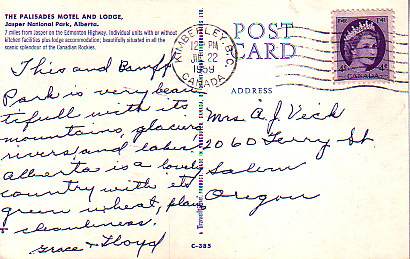 THE PALISADES MOTEL AND LODGE,
Jasper National Park, Alberta.
7 miles from Jasper on the Edmonton Highway. Individual units with or without
kitchen facilities plus lodge accommodation; beautifully situated in all the
scenic splendour of the Canadian Rockies.
This and Banff
Park is very beau
tifull with its
mountains, glaciers
rivers and lakes
Alberta is a lovely
country with its
green wheat, plus
cleanliness.
Grace + Floyd
C-385
POST
CARD
ADDRESS
KIMBERLEY B.C.
12 PM
22
1959
CANADA
CANADA
4¢ 4¢
Mrs A. J. Veick
2060 Ferry St
Salem
Oregon